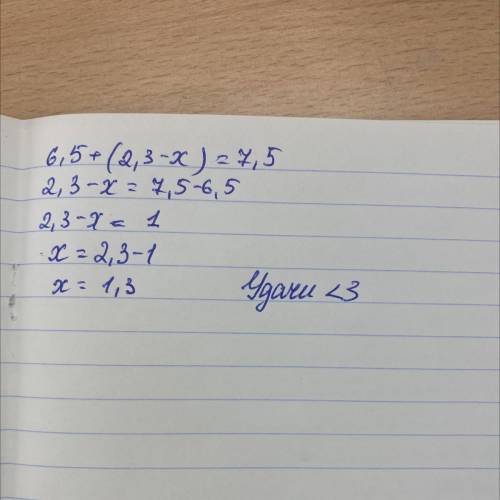 6,5+(2,3-x)=7,5
2,3-x=7,5-6,5
2,3-x= 1
x=2,3-1
x=1,3 Удачи <3